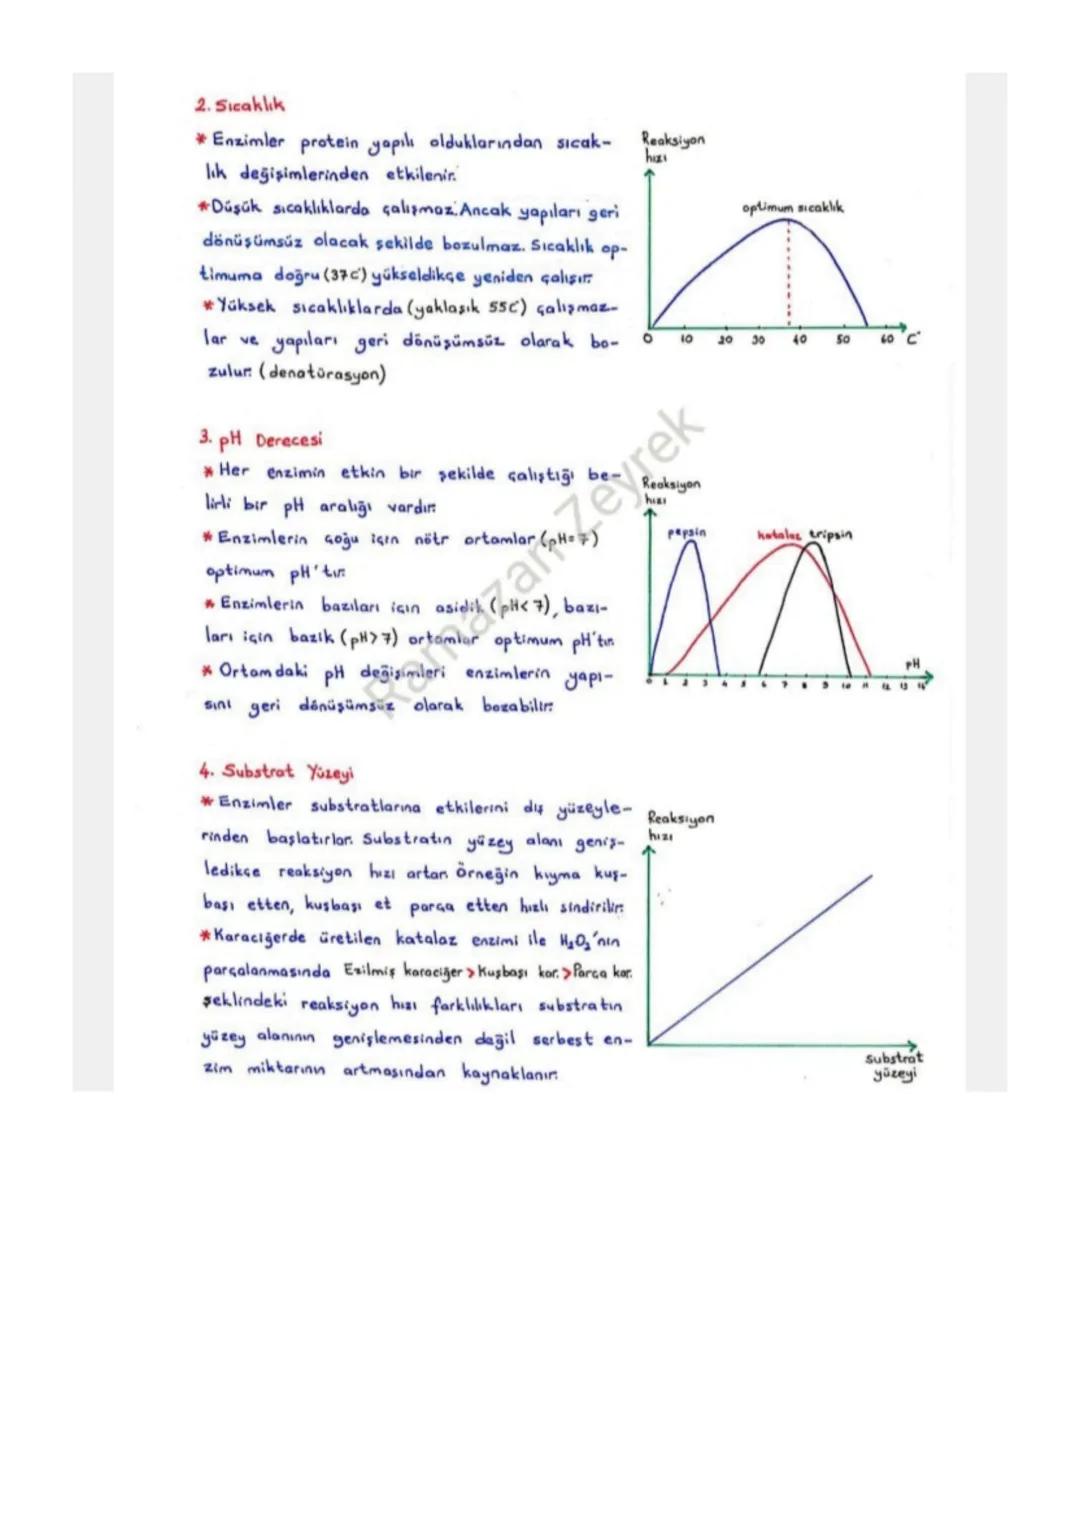 2. Sıcaklık
* Enzimler protein yapılı olduklarından sıcak-
lık değişimlerinden etkilenir.
* Düşük sıcaklıklarda çalışmaz. Ancak yapıları geri
dönüşümsüz olacak şekilde bozulmaz. Sıcaklık op-
timuma doğru (37C°) yükseldikçe yeniden çalışır.
* Yüksek sıcaklıklarda (yaklaşık 55C°) çalışmaz-
lar ve yapıları geri dönüşümsüz olarak bo-
zulur. (denatürasyon)
Reaksiyon
hızı
optimum sıcaklık
0 10 20 30 40 50 60 C°
3. pH Derecesi
* Her enzimin etkin bir şekilde çalıştığı be-
lirli bir pH aralığı vardır.
* Enzimlerin çoğu için nötr ortamlar (pH=7)
optimum pH'tır.
* Enzimlerin bazıları için asidik (pH<7), bazı-
ları için bazik (pH>7) ortamlar optimum pH'tır.
* Ortamdaki pH değişimleri enzimlerin yapı-
sını geri dönüşümsüz olarak bozabilir.
Reaksiyon
hızı
pepsin katalaz tripsin
pH
0 1 2 3 4 5 6 7 8 9 10 11 12 13 14
4. Substrat Yüzeyi
* Enzimler substratlarına etkilerini dış yüzeyle-
rinden başlatırlar. Substratın yüzey alanı geniş-
ledikçe reaksiyon hızı artar. Örneğin kıyma kuş-
başı etten, kuşbaşı et parça etten hızlı sindirilir.
* Karaciğerde üretilen katalaz enzimi ile H₂O₂'nin
parçalanmasında Ezilmiş karaciğer > Kuşbaşı kar. > Parça kar.
şeklindeki reaksiyon hızı farklılıkları substratın
yüzey alanının genişlemesinden değil serbest en-
zim miktarının artmasından kaynaklanır.
Reaksiyon
hızı
substrat
yüzeyi
Ramazan Zeyrek